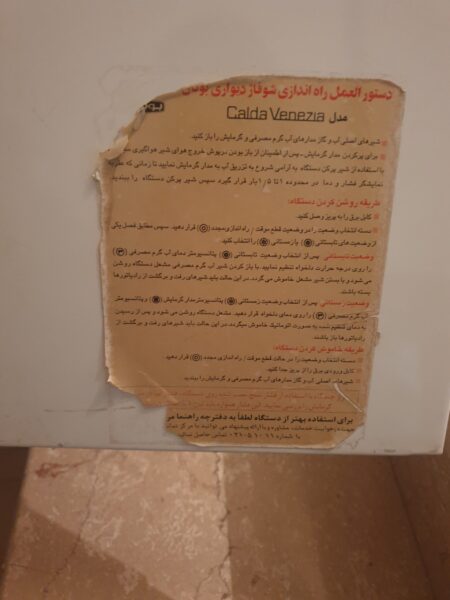 دستورالعمل راه اندازی شوفاژ دیواری بوتان
مدل Calda Venezia
شیرهای اصلی آب و گاز مدارهای آب گرم مصرفی و گرمایش را باز کنید.
برای پرکردن مدار گرمایش، پس از اطمینان از باز بودن درپوش خروج هوای شیر هواگیری
با استفاده از شیر پرکن دستگاه به آرامی شروع به تزریق آب به مدار گرمایش نمایید تا زمانی که
نمایشگر فشار و دما در محدوده ۱ تا ۱/۵ بار قرار گیرد سپس شیر پرکن دستگاه را ببندید.
طریقه روشن کردن دستگاه:
کابل برق را به پریز وصل کنید.
دسته انتخاب وضعیت را در وضعیت قطع موقت / راه اندازی مجدد قرار دهید. سپس مطابق فصل یکی
از وضعیت های تابستانی یا زمستانی را انتخاب کنید.
وضعیت تابستانی: پس از انتخاب وضعیت تابستانی پتانسیومتر دمای آب گرم مصرفی
را روی درجه حرارت دلخواه تنظیم نمایید. با باز کردن شیر آب گرم مصرفی مشعل دستگاه روشن
می شود و با بستن شیر مشعل خاموش می گردد. در این حالت باید شیرهای رفت و برگشت از رادیاتورها
بسته باشند.
وضعیت زمستانی: پس از انتخاب وضعیت زمستانی پتانسیومتر مدار گرمایش و پتانسیومتر
آب گرم مصرفی را روی دمای دلخواه قرار دهید. مشعل دستگاه روشن می شود و پس از رسیدن
به دمای تنظیم شده به صورت اتوماتیک خاموش میگردد. در این حالت باید شیرهای رفت و برگشت از
رادیاتورها باز باشند.
طریقه خاموش کردن دستگاه:
دسته انتخاب وضعیت را در حالت قطع موقت / راه اندازی مجدد قرار دهید.
کابل ورودی برق را از پریز جدا کنید.
شیرهای اصلی آب و گاز مدارهای آب گرم مصرفی و گرمایش را ببندید.
برای استفاده بهتر از دستگاه لطفاً به دفترچه راهنما
جهت درخواست خدمات، مشاوره و یا ارائه پیشنهاد می توانید با مرکز
تماس حاصل